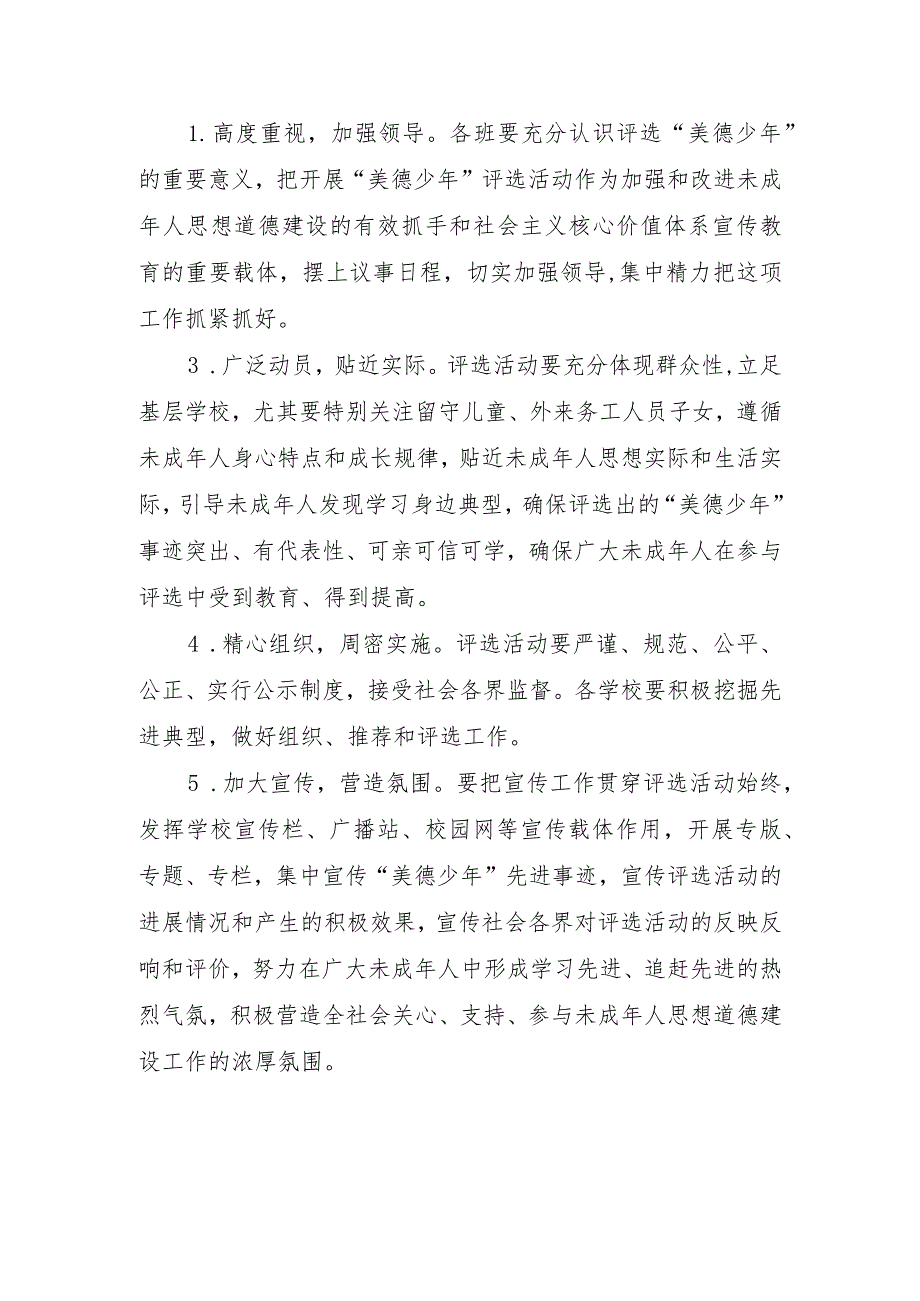 1.高度重视，加强领导。各班要充分认识评选“美德少年”
的重要意义，把开展“美德少年”评选活动作为加强和改进未成
年人思想道德建设的有效抓手和社会主义核心价值体系宣传教
育的重要载体，摆上议事日程，切实加强领导,集中精力把这项
工作抓紧抓好。
3 .广泛动员，贴近实际。评选活动要充分体现群众性,立足
基层学校，尤其要特别关注留守儿童、外来务工人员子女，遵循
未成年人身心特点和成长规律，贴近未成年人思想实际和生活实
际，引导未成年人发现学习身边典型，确保评选出的“美德少年”
事迹突出、有代表性、可亲可信可学，确保广大未成年人在参与
评选中受到教育、得到提高。
4 .精心组织，周密实施。评选活动要严谨、规范、公平、
公正、实行公示制度，接受社会各界监督。各学校要积极挖掘先
进典型，做好组织、推荐和评选工作。
5 .加大宣传，营造氛围。要把宣传工作贯穿评选活动始终，
发挥学校宣传栏、广播站、校园网等宣传载体作用，开展专版、
专题、专栏，集中宣传“美德少年”先进事迹，宣传评选活动的
进展情况和产生的积极效果，宣传社会各界对评选活动的反映反
响和评价，努力在广大未成年人中形成学习先进、追赶先进的热
烈气氛，积极营造全社会关心、支持、参与未成年人思想道德建
设工作的浓厚氛围。